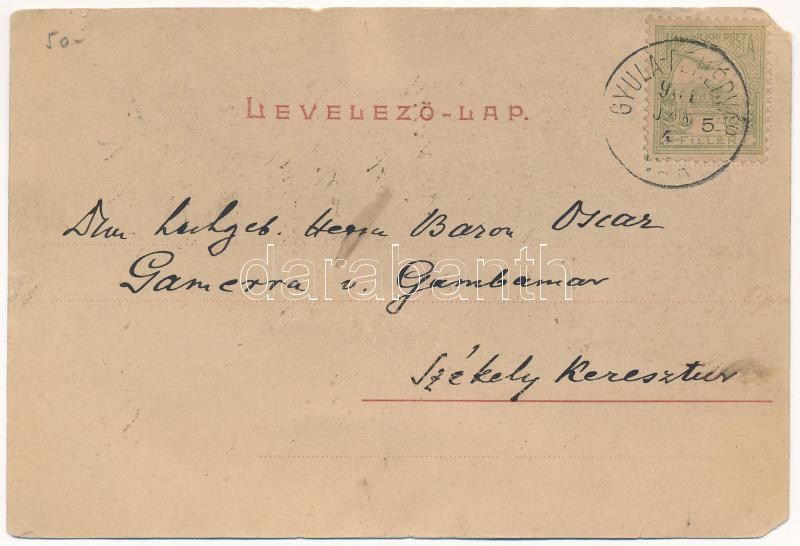 50-
LEVELEZŐ-LAP.
MAGYAR KIR. POSTA
5
FILLÉR
GYULA-FEHÉRVÁR
901
JAN
4
hochgeb. Herrn Baron Oscar
Gamerra v. Gambamar
Székely Keresztur
darabanth